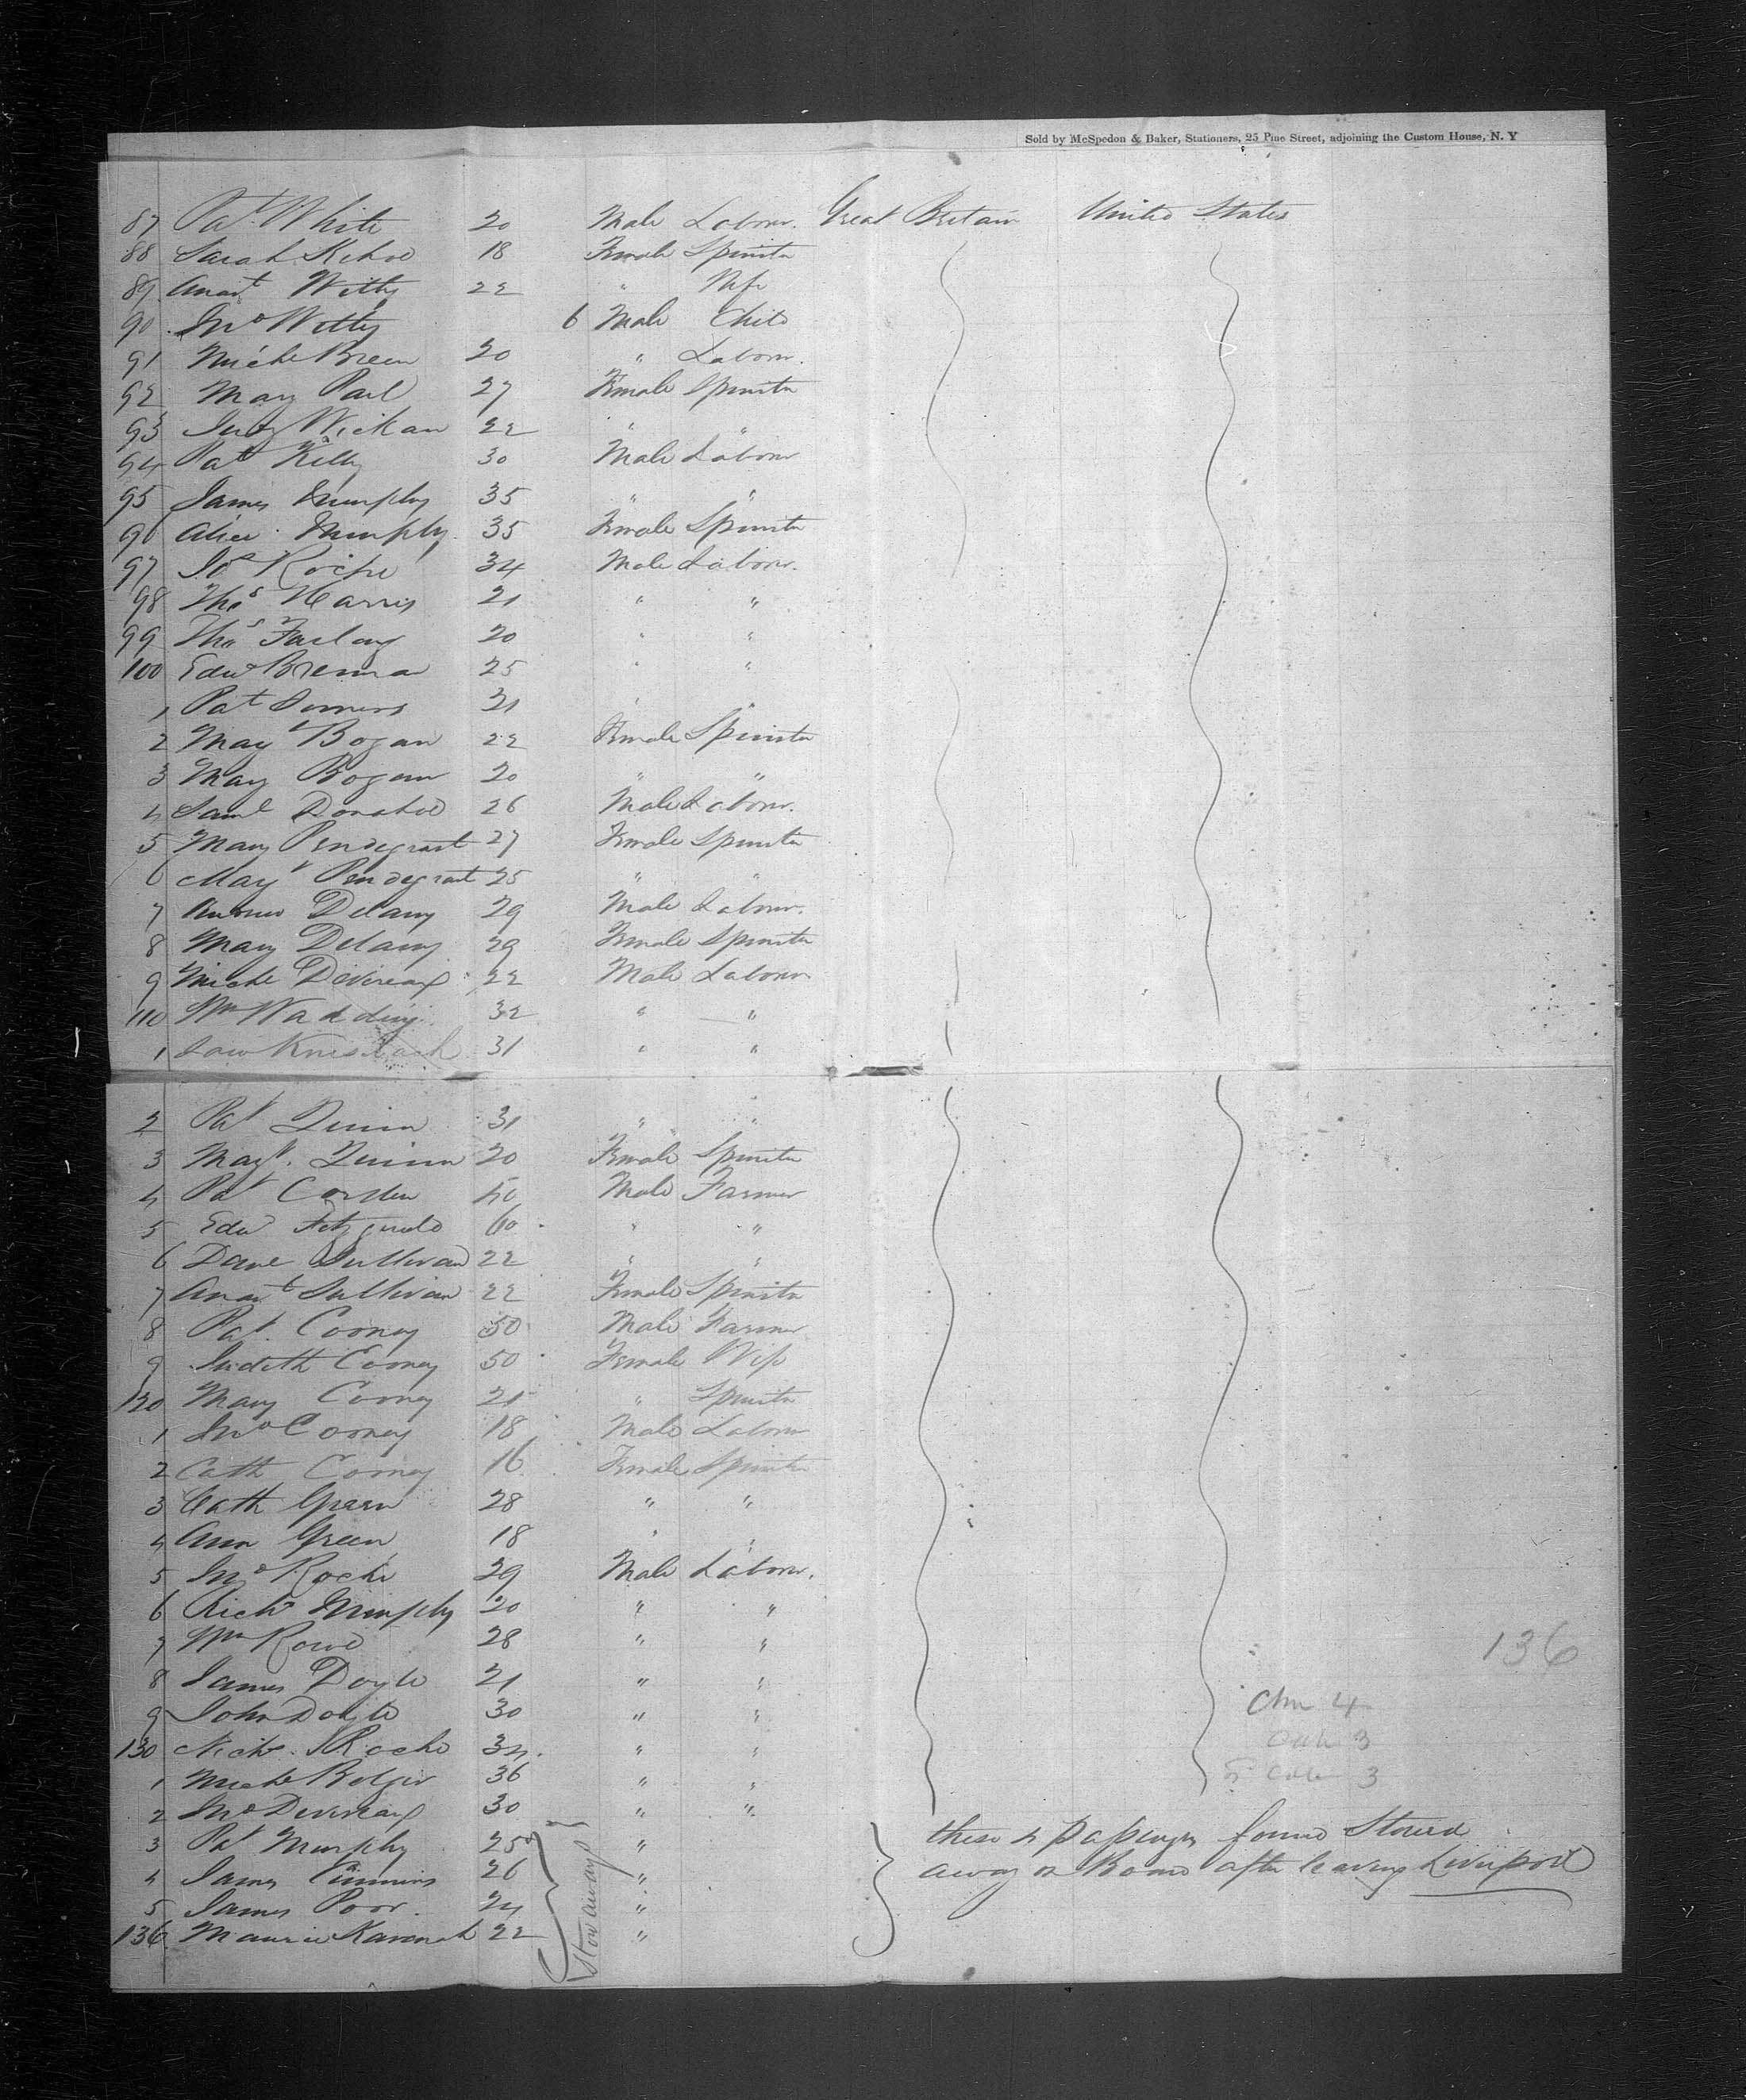 Sold by McSpedon & Baker, Stationers, 25 Pine Street, adjoining the Custom House, N. Y
87 Pat White 20 Male Labour. Great Britain United States
88 Sarah Kehoe 18 Female Spinster
89 Anast Witty 22 " Wife
90 Jno Witty 6 Male Child
91 Michl Breen 20 " Labour.
92 Mary Parl 27 Female Spinster
93 Judy Wickam 22 " "
94 Pat Kelly 30 Male Labour
95 James Murphy 35 " "
96 Alice Murphy 35 Female Spinster
97 Jas Roche 34 Male Labour.
98 Thos Harris 21 " "
99 Thos Furlong 20 " "
100 Edwd Brennan 25 " "
1 Pat Somers 21 " "
2 Magt Bogan 22 Female Spinster
3 Mary Bogan 20 " "
4 Saml Donahoe 26 Male Labour.
5 Mary Pendegrast 27 Female Spinster
6 Magt Pendegrast 25 " "
7 Andrew Delany 29 Male Labour.
8 Mary Delany 29 Female Spinster
9 Michl Devereax 22 Male Labour
110 Wm Wadding 32 " "
1 Law 31 " "
2 Pat Quinn 31 " "
3 Magt. Quinn 20 Female Spinster
4 Pat 50 Male Farmer
5 Edwd Fitzgerald 60 " "
6 Dane Sullivan 22 " "
7 Anast Sullivan 22 Female Spinster
8 Pat. Cooney 50 Male Farmer
9 Judeth Cooney 50 Female Wife
120 Mary Cooney 21 " Spinster
1 Jno Cooney 18 Male Labour
2 Cath Cooney 16 Female Spinster
3 Cath Green 28 " "
4 Ann Green 18 " "
5 Jno Roche 29 Male Labour.
6 Richd Murphy 20 " "
7 Wm Rowe 28 " "
136
8 James Doyle 21 " "
9 John Doyle 30 " "
130 Nichs. Roche 34. " "
1 Michl Bolger 36 " "
2 Jno Devereaux 30 " "
3 Pat Murphy 25 "
these 4 passengers found Stowed
4 James Cummins 26 "
away on Board after leaving Liverpool
5 James Poor. 24 "
136 Maurice Kavanah 22 "
Stow aways